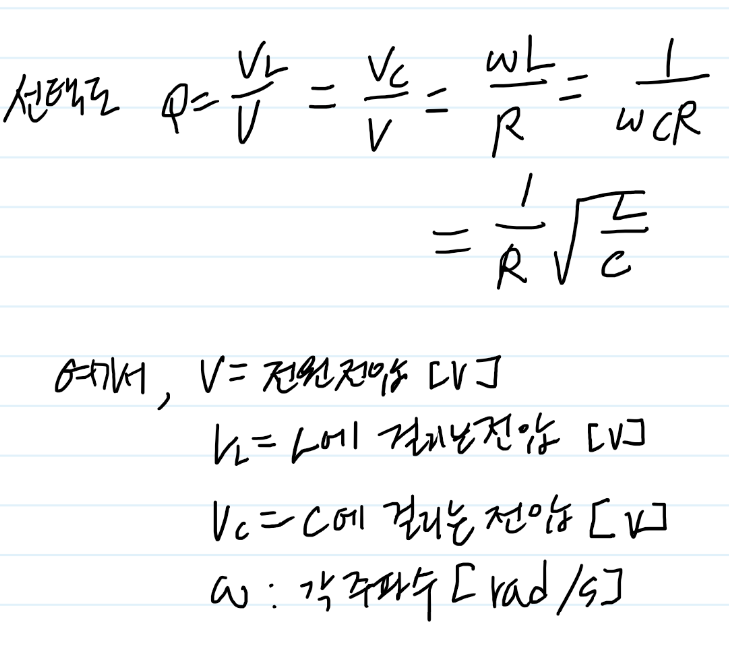 선택도 Q = V_L/V = V_C/V = ωL/R = 1/ωCR
= 1/R √(L/C)
여기서, V = 전원전압 [V]
V_L = L에 걸리는전압 [V]
V_C = C에 걸리는 전압 [V]
ω : 각주파수 [rad/s]